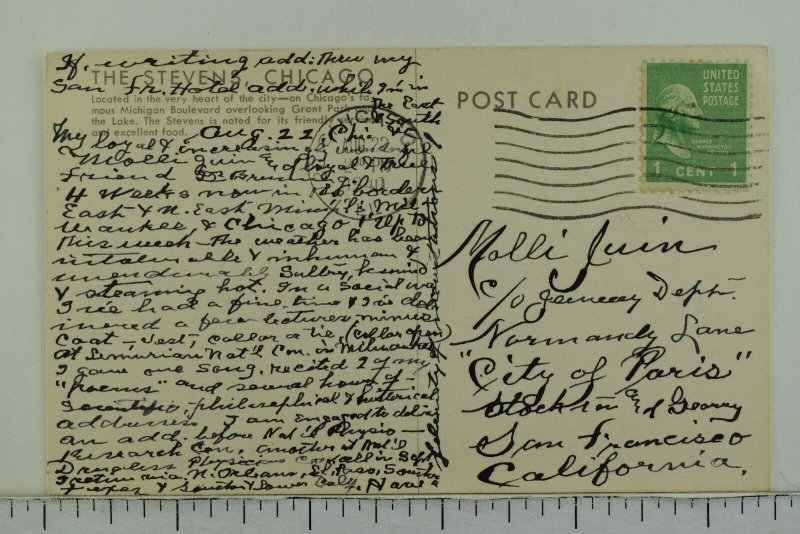 If writing add: thru my
San Fr. Hotel add. while I'm in
the East
& South
THE STEVENS, CHICAGO
Located in the very heart of the city—on Chicago's fa-
mous Michigan Boulevard overlooking Grant Park
the Lake. The Stevens is noted for its friendly
and excellent food.
Aug. 22 Chi
My loyal &
Molli Juin & loyal & true
friend
4 weeks now in the borders
East & N. East Minn. Mil-
waukee, & Chicago! Up to
this week the weather has been
intolerable & inhuman &
unendurably Sultry, humid
& steaming hot. In a social way
I've had a fine time & I've del-
ivered a few lectures minus
Coat, Vest, collar & tie, (collar open)
at Lemurian Nat'l Con. in Milwaukee
I gave one Song, recited 2 of my
"poems" and several hours of
Scientific, philosophical & historical
addresses. I am engaged to deliver
an add. before Nat'l Physio-
Research Con. another at Nat'l
Drugless Physicians in Sept.
N. Orleans, El Paso, Southern
Texas & Lower Calif. Have
POST CARD
UNITED
STATES
POSTAGE
GEORGE
WASHINGTON
1 CENT 1
Molli Juin
c/o Jewelry Dept.
Normandy Lane
"City of Paris"
Stockton & Geary
San Francisco
California.